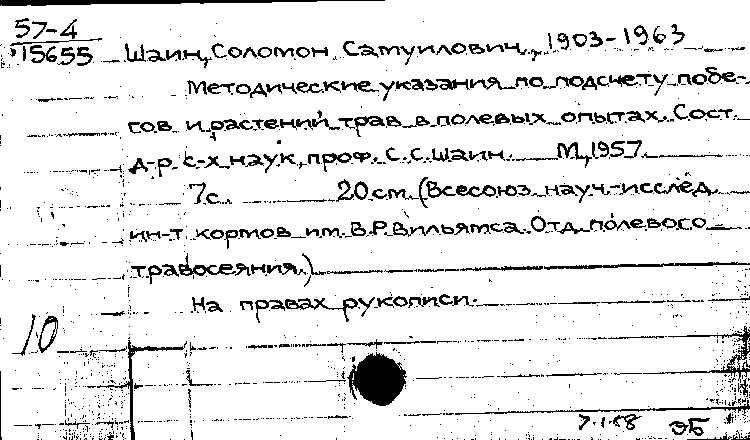 57-4
15655 Шаин, Соломон Самуилович, 1903-1963
Методические указания по подсчету побе-
гов и растений трав в полевых опытах. Сост.
д-р с-х наук, проф. С.С. Шаин. М., 1957.
7с. 20 см. (Всесоюз. науч.-исслед.
ин-т кормов им. В.Р. Вильямса. Отд. полевого
травосеяния.)
На правах рукописи.
10
ЭБ